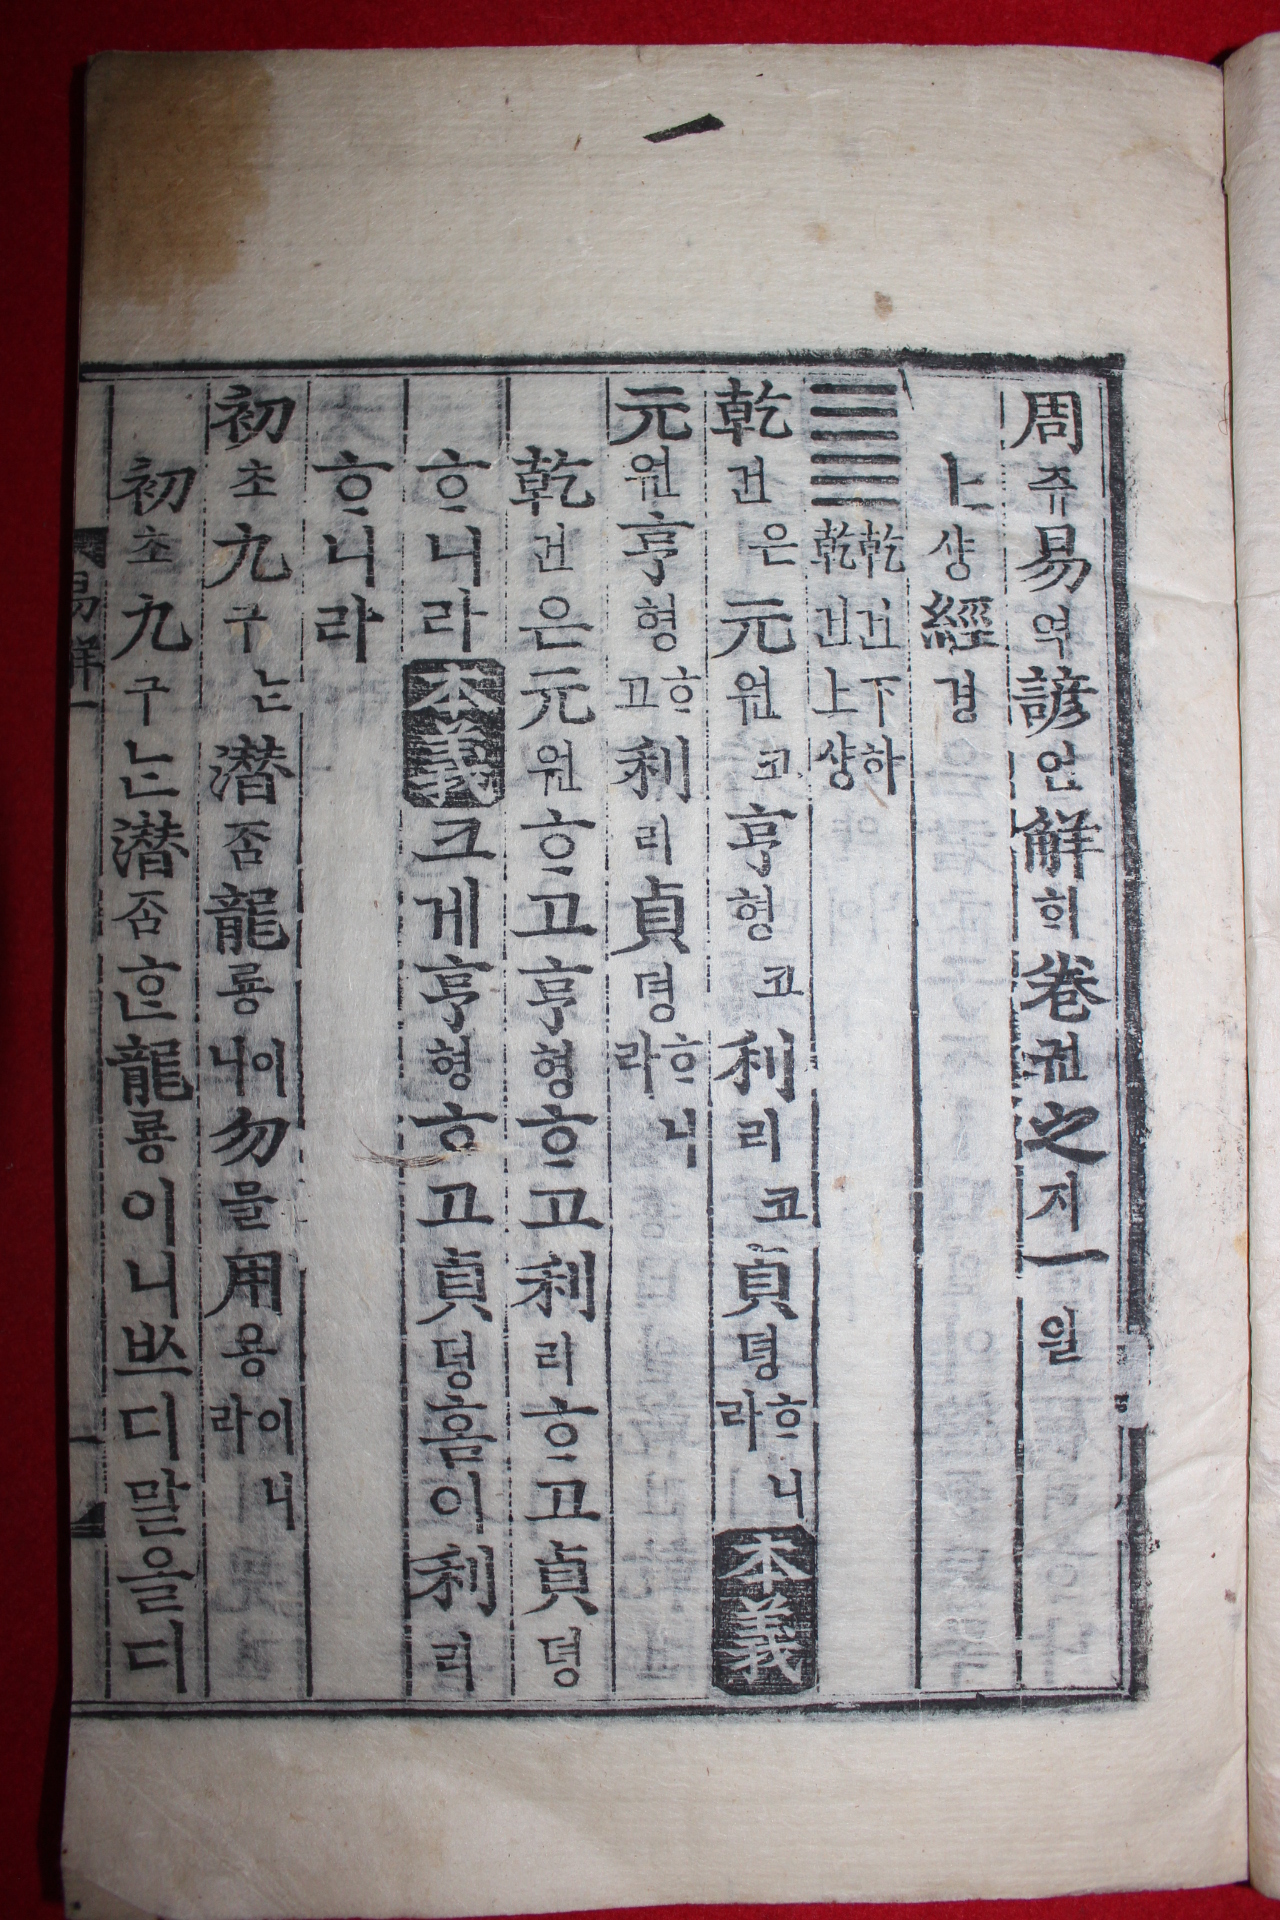 一
周쥬易역諺언解ᄒᆡ卷권之지一일
上샹經경
乾건下하乾건上샹
乾건은元원코亨형코利리코貞뎡ᄒᆞ니라本義
元원亨형ᄒᆞ고利리貞뎡ᄒᆞ니라
乾건은元원ᄒᆞ고亨형ᄒᆞ고利리ᄒᆞ고貞뎡
ᄒᆞ니라本義크게亨형ᄒᆞ고貞뎡홈이利리
ᄒᆞ니라
初초九구ᄂᆞᆫ潛ᄌᆞᆷ龍룡이니勿믈用용이니라
初초九구ᄂᆞᆫ潛ᄌᆞᆷᄒᆞᆫ龍룡이니ᄡᅳ디말올디
易解一
一